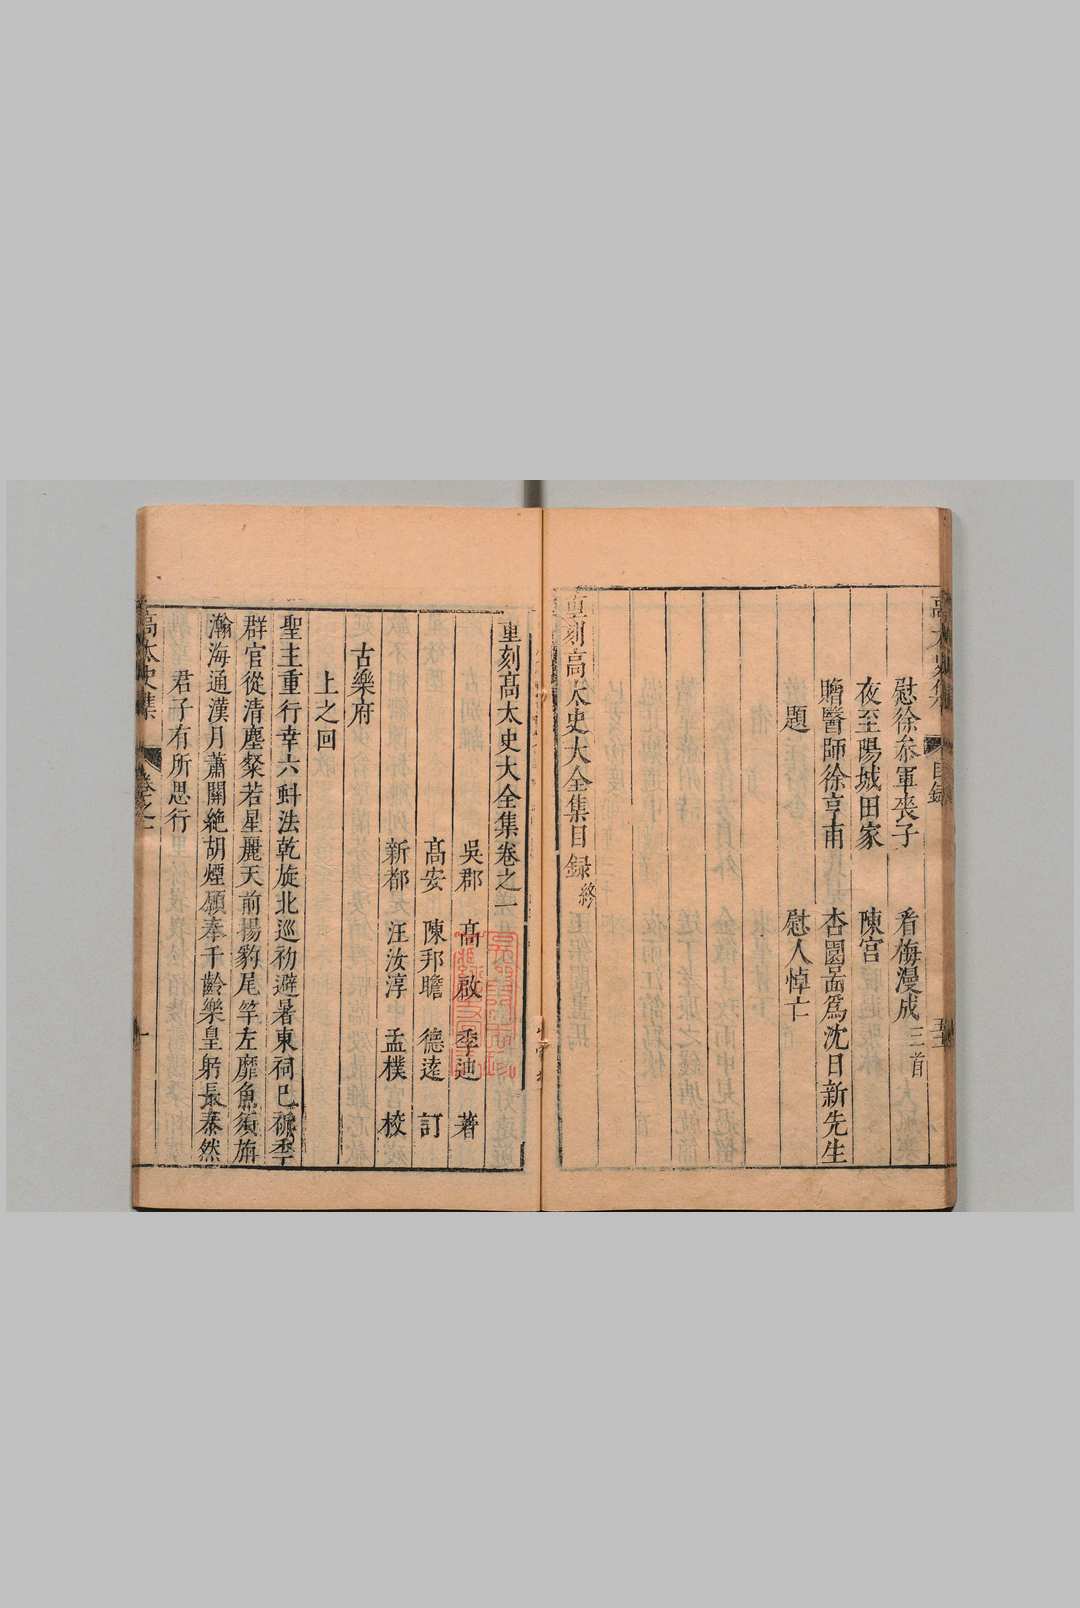 高太史集
目錄
慰徐叅軍喪子
看梅漫成三首
夜至陽城田家
陳宮
贈醫師徐亨甫
杏園啚爲沈日新先生
題
慰人悼亡
重刻高太史大全集目録終
重刻髙太史大全集卷之一
吳郡 髙啟 季迪 著
髙安 陳邦瞻 德逺 訂
新都 汪汝淳 孟樸 校
古樂府
上之回
聖主重行幸六虯法乾旋北巡初避暑東祠巳
群官從清塵粲若星麗天前揚豹尾竿左靡魚須旃
瀚海通漢月蕭關絶胡煙願奉千齡樂皇躬長泰然
君子有所思行
高太史集
卷之一
一